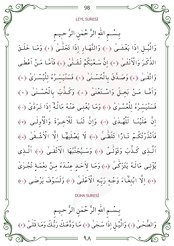 98
LEYL SURESİ
بِسْمِ اللّٰهِ الرَّحْمٰنِ الرَّحِيمِ
وَالَّيْلِ اِذَا يَغْشٰىۙ ﴿١﴾ وَالنَّهَارِ اِذَا تَجَلّٰىۙ ﴿٢﴾ وَمَا خَلَقَ
الذَّكَرَ وَالْاُنْثٰىۙ ﴿٣﴾ اِنَّ سَعْيَكُمْ لَشَتّٰىۜ ﴿٤﴾ فَاَمَّا مَنْ اَعْطٰى
وَاتَّقٰىۙ ﴿٥﴾ وَصَدَّقَ بِالْحُسْنٰىۙ ﴿٦﴾ فَسَنُيَسِّرُهُ لِلْيُسْرٰىۜ ﴿٧﴾
وَاَمَّا مَنْ بَخِلَ وَاسْتَغْنٰىۙ ﴿٨﴾ وَكَذَّبَ بِالْحُسْنٰىۙ ﴿٩﴾
فَسَنُيَسِّرُهُ لِلْعُسْرٰىۜ ﴿١٠﴾ وَمَا يُغْنِي عَنْهُ مَالُهُٓ اِذَا تَرَدّٰىۜ ﴿١١﴾
اِنَّ عَلَيْنَا لَلْهُدٰىۘ ﴿١٢﴾ وَاِنَّ لَنَا لَلْاٰخِرَةَ وَالْاُو۫لٰى ﴿١٣﴾
فَاَنْذَرْتُكُمْ نَارًا تَلَظّٰىۚ ﴿١٤﴾ لَا يَصْلٰيهَٓا اِلَّا الْاَشْقٰىۙ ﴿١٥﴾
اَلَّذِي كَذَّبَ وَتَوَلّٰىۜ ﴿١٦﴾ وَسَيُجَنَّبُهَا الْاَتْقٰىۙ ﴿١٧﴾ اَلَّذِي
يُؤْتِي مَالَهُ يَتَزَكّٰىۚ ﴿١٨﴾ وَمَا لِاَحَدٍ عِنْدَهُ مِنْ نِعْمَةٍ تُجْزٰىۙ
﴿١٩﴾ اِلَّا ابْتِغَٓاءَ وَجْهِ رَبِّهِ الْاَعْلٰىۚ ﴿٢٠﴾ وَلَسَوْفَ يَرْضٰى ﴿٢١﴾
DUHA SURESİ
بِسْمِ اللّٰهِ الرَّحْمٰنِ الرَّحِيمِ
وَالضُّحٰىۙ ﴿١﴾ وَالَّيْلِ اِذَا سَجٰىۙ ﴿٢﴾ مَا وَدَّعَكَ رَبُّكَ وَمَا قَلٰىۜ ﴿٣﴾
٩٨